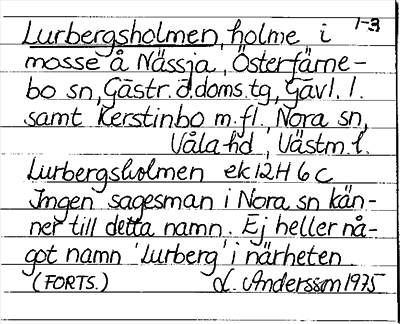 1-3
Lurbergsholmen, holme i
mosse å Nässja, Österfärne-
bo sn, Gästr. ö. doms. tg, Gävl. l.
samt Kerstinbo m.fl., Nora sn,
Våla hd, Västm. l.
Lurbergsholmen ek 12H 6c
Ingen sagesman i Nora sn kän-
ner till detta namn. Ej heller nå-
got namn 'Lurberg' i närheten
(FORTS.) L. Andersson 1975